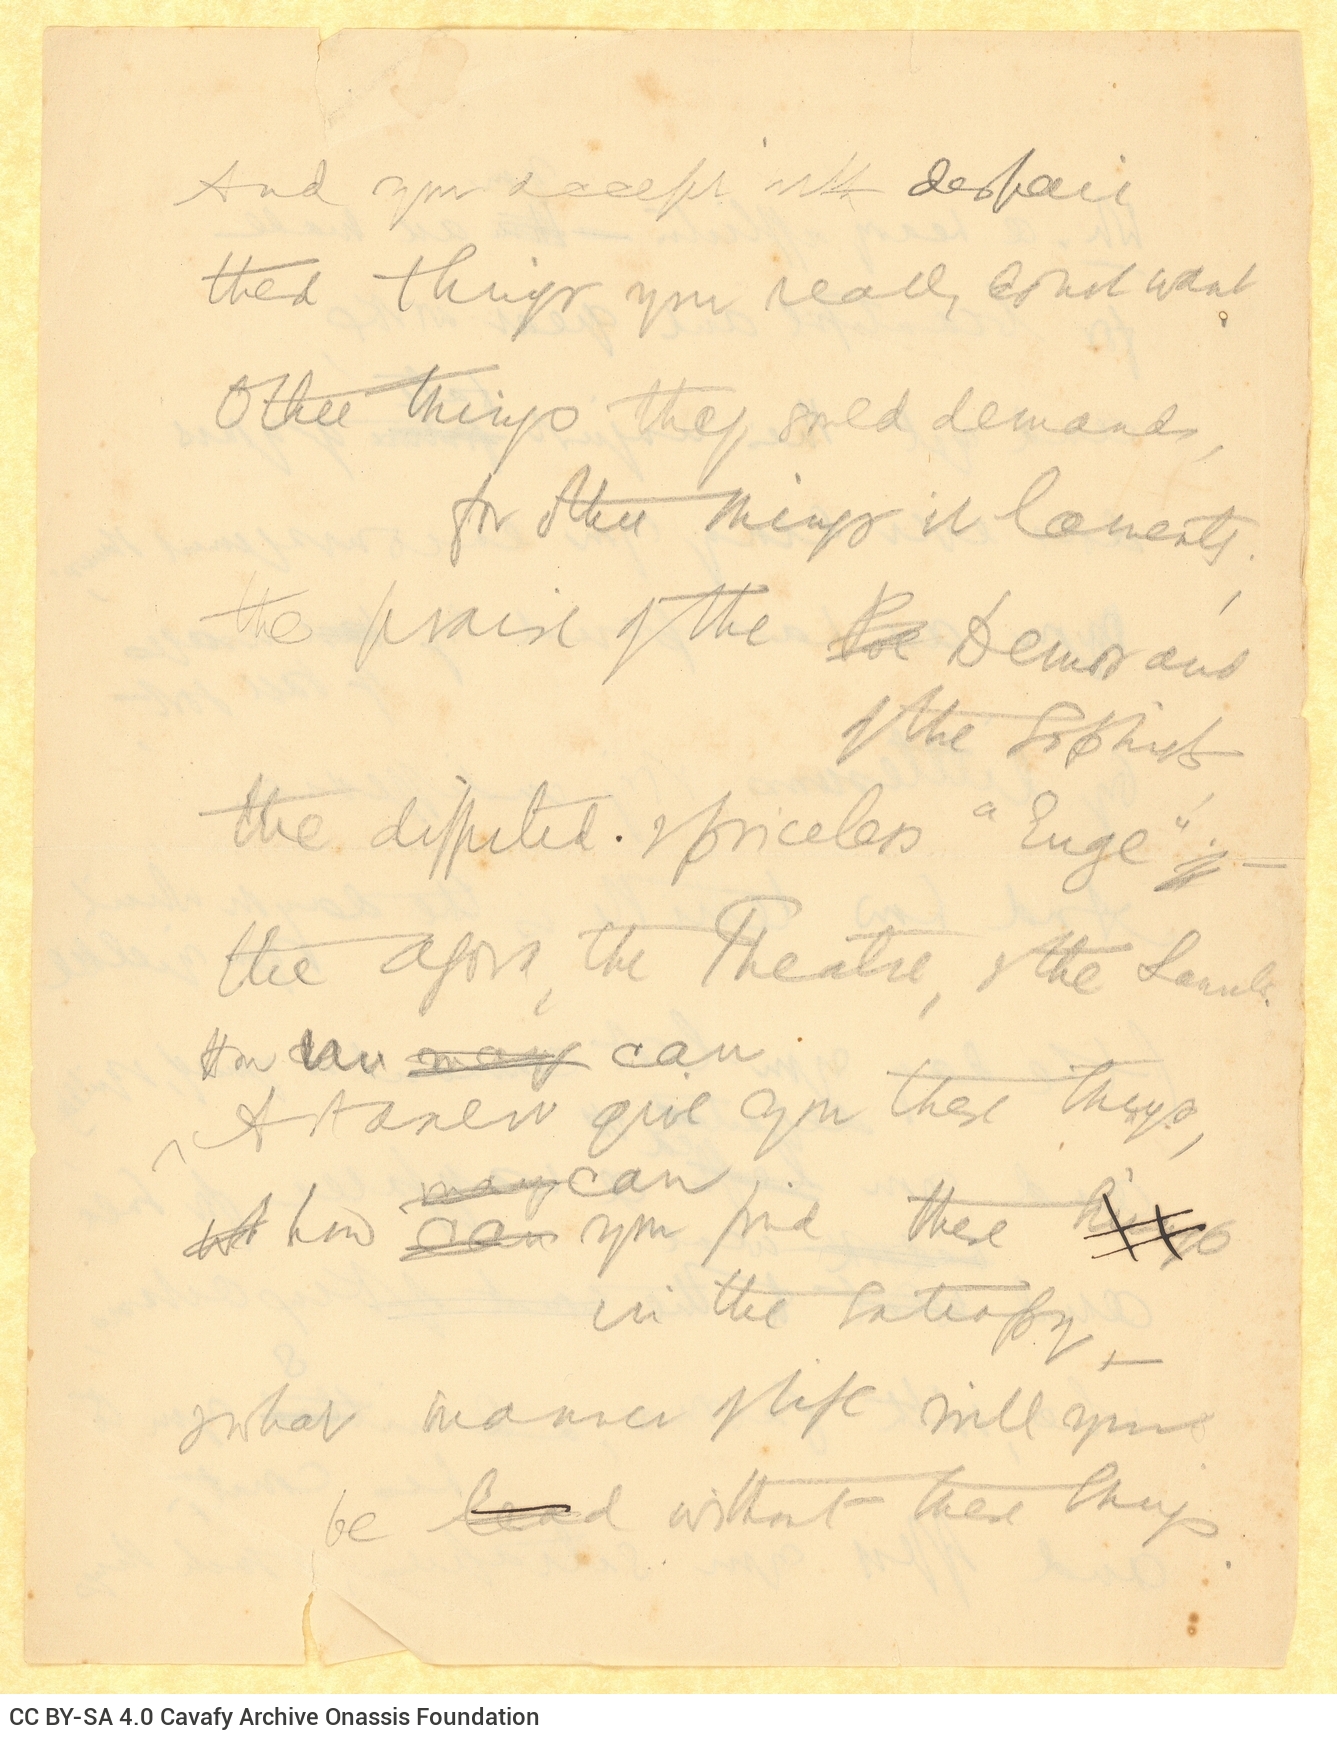 And you accept with despair
these things you really do not want.
Other things thy soul demands,
for other things it laments;
the praise of the Demos and
of the Sophists,
the difficult & priceless "Euge" —
the Agora, the Theatre, & the Laurels.
How can may can
Artaxerx give you these things,
may can
how can you find these things
in the satrapy, —
& what manner of life will you
be lead without these things.
CC BY-SA 4.0 Cavafy Archive Onassis Foundation